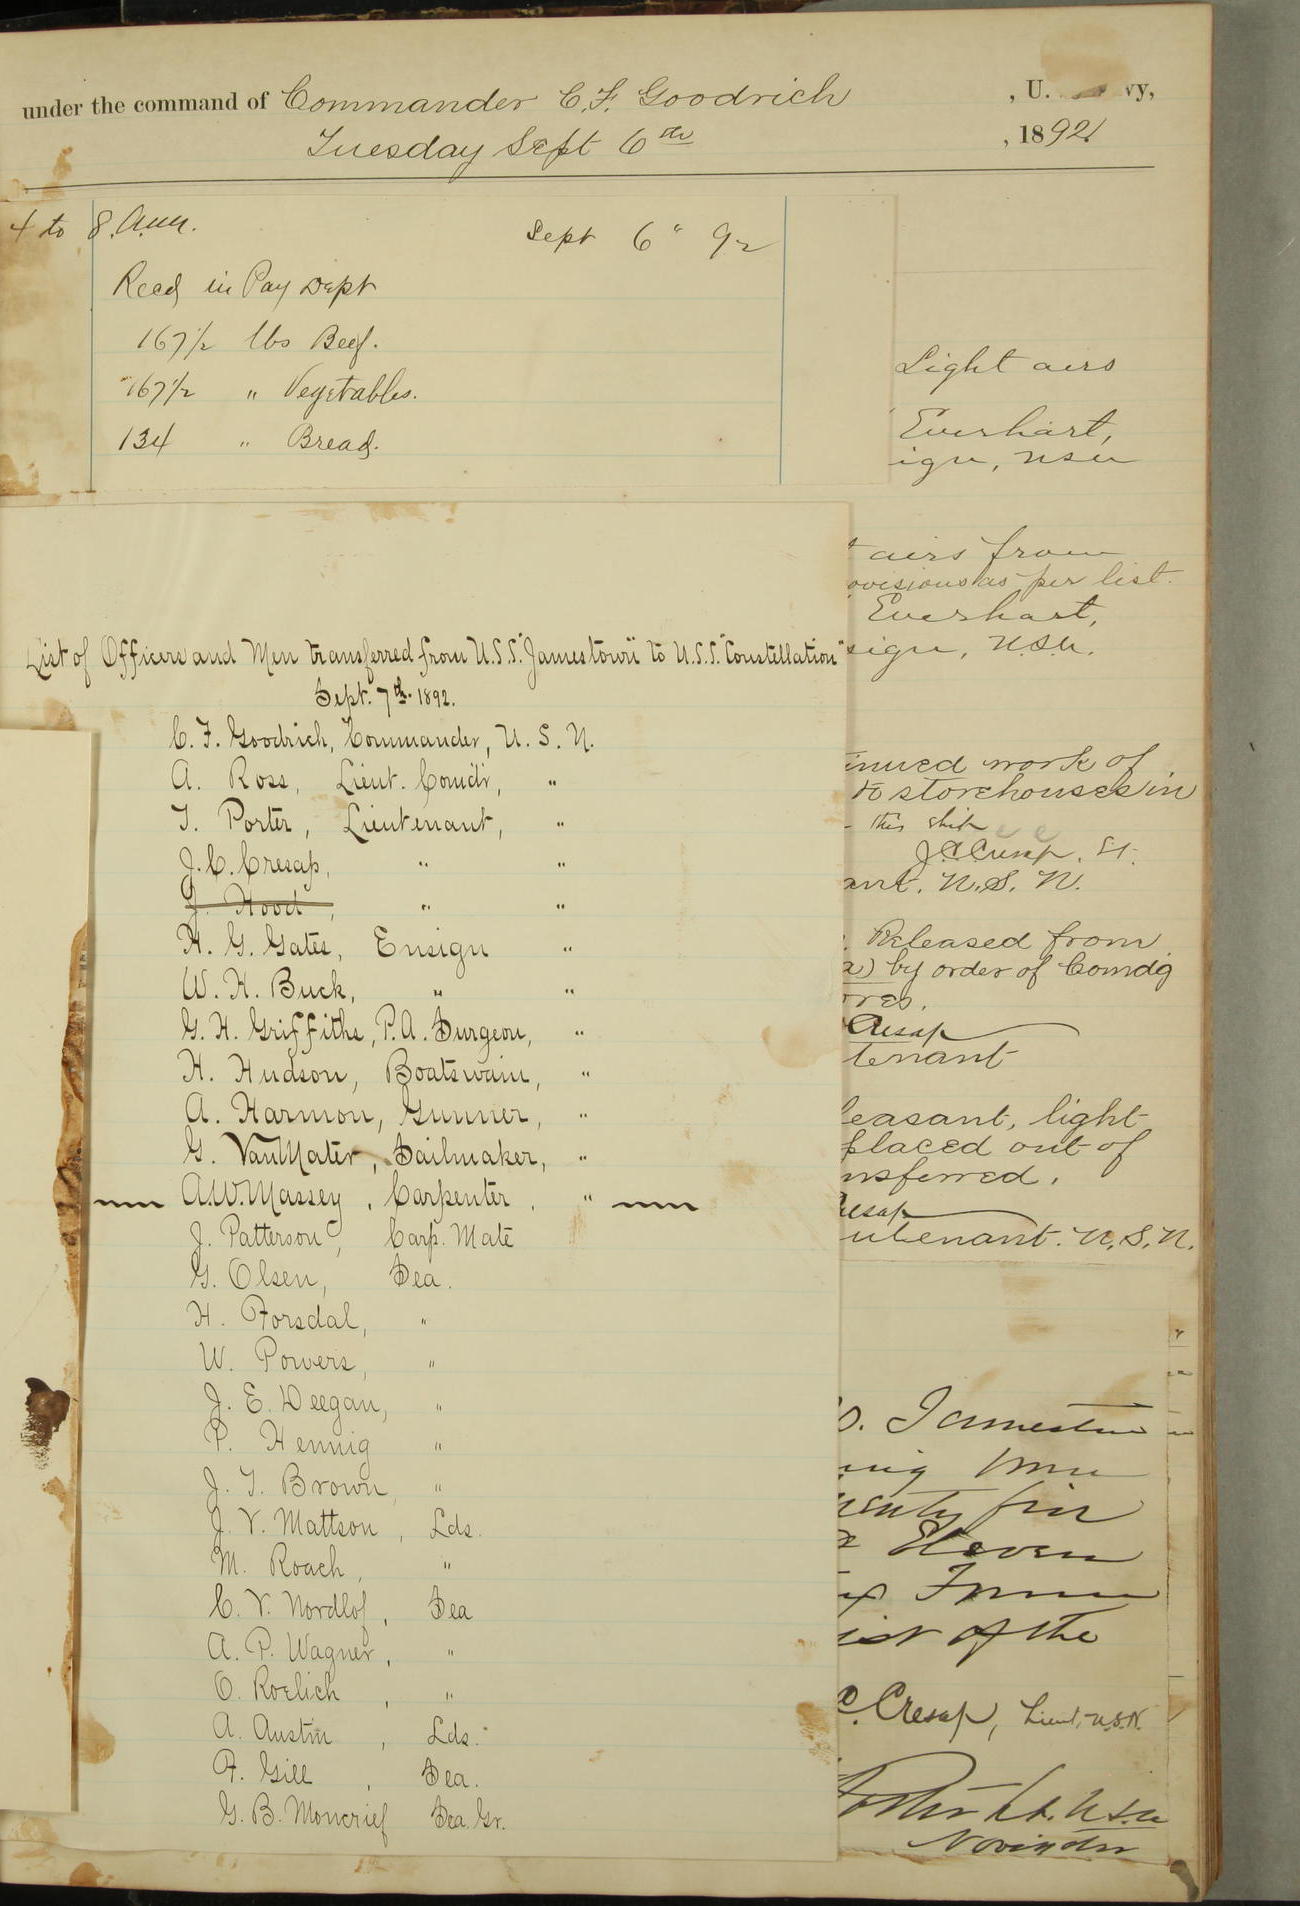 under the command of Commander C. F. Goodrich , U. vy,
Tuesday Sept 6th , 1892
4 to 8. A.M. Sept 6" 92
Recd in Pay Dept
167½ lbs Beef.
167½ " Vegetables.
134 " Bread.
Light airs
Everhart,
ign, USN
List of Officers and Men transferred from U.S.S. "Jamestown" to U.S.S. "Constellation"
Sept. 7th. 1892.
C. F. Goodrich, Commander, U. S. N.
A. Ross, Lieut. Comdr, "
T. Porter, Lieutenant, "
J. C. Cresap, " "
J. Hood, " "
H. G. Gates, Ensign "
W. H. Buck, " "
G. H. Griffiths, P. A. Surgeon, "
H. Hudson, Boatswain, "
A. Harmon, Gunner, "
G. VanMater, Sailmaker, "
A. W. Massey, Carpenter, "
J. Patterson, Carp. Mate
G. Olsen, Sea.
H. Forsdal, "
W. Powers, "
J. E. Deegan, "
P. Hennig "
J. T. Brown, "
J. V. Mattson, Lds.
M. Roach, "
C. V. Nordlof, Sea
A. P. Wagner, "
O. Roelich, "
A. Austin, Lds.
F. Gill, Sea.
G. B. Moncrief Sea. Gr.
airs from
ovisions as per list.
Everhart,
sign, U.S.N.
inued work of
to storehouses in
this ship
J. C. Cresap, Lt.
ant, U. S. N.
. Released from
a) by order of Comdg
ores.
Cresap
tenant
leasant, light
placed out of
nsferred.
resap
utenant. U. S. N.
. Jamestown
ing
enty five
Eleven
ist of the
C. Cresap, Lieut, U.S.N.
Porter Lt. U.S.N.